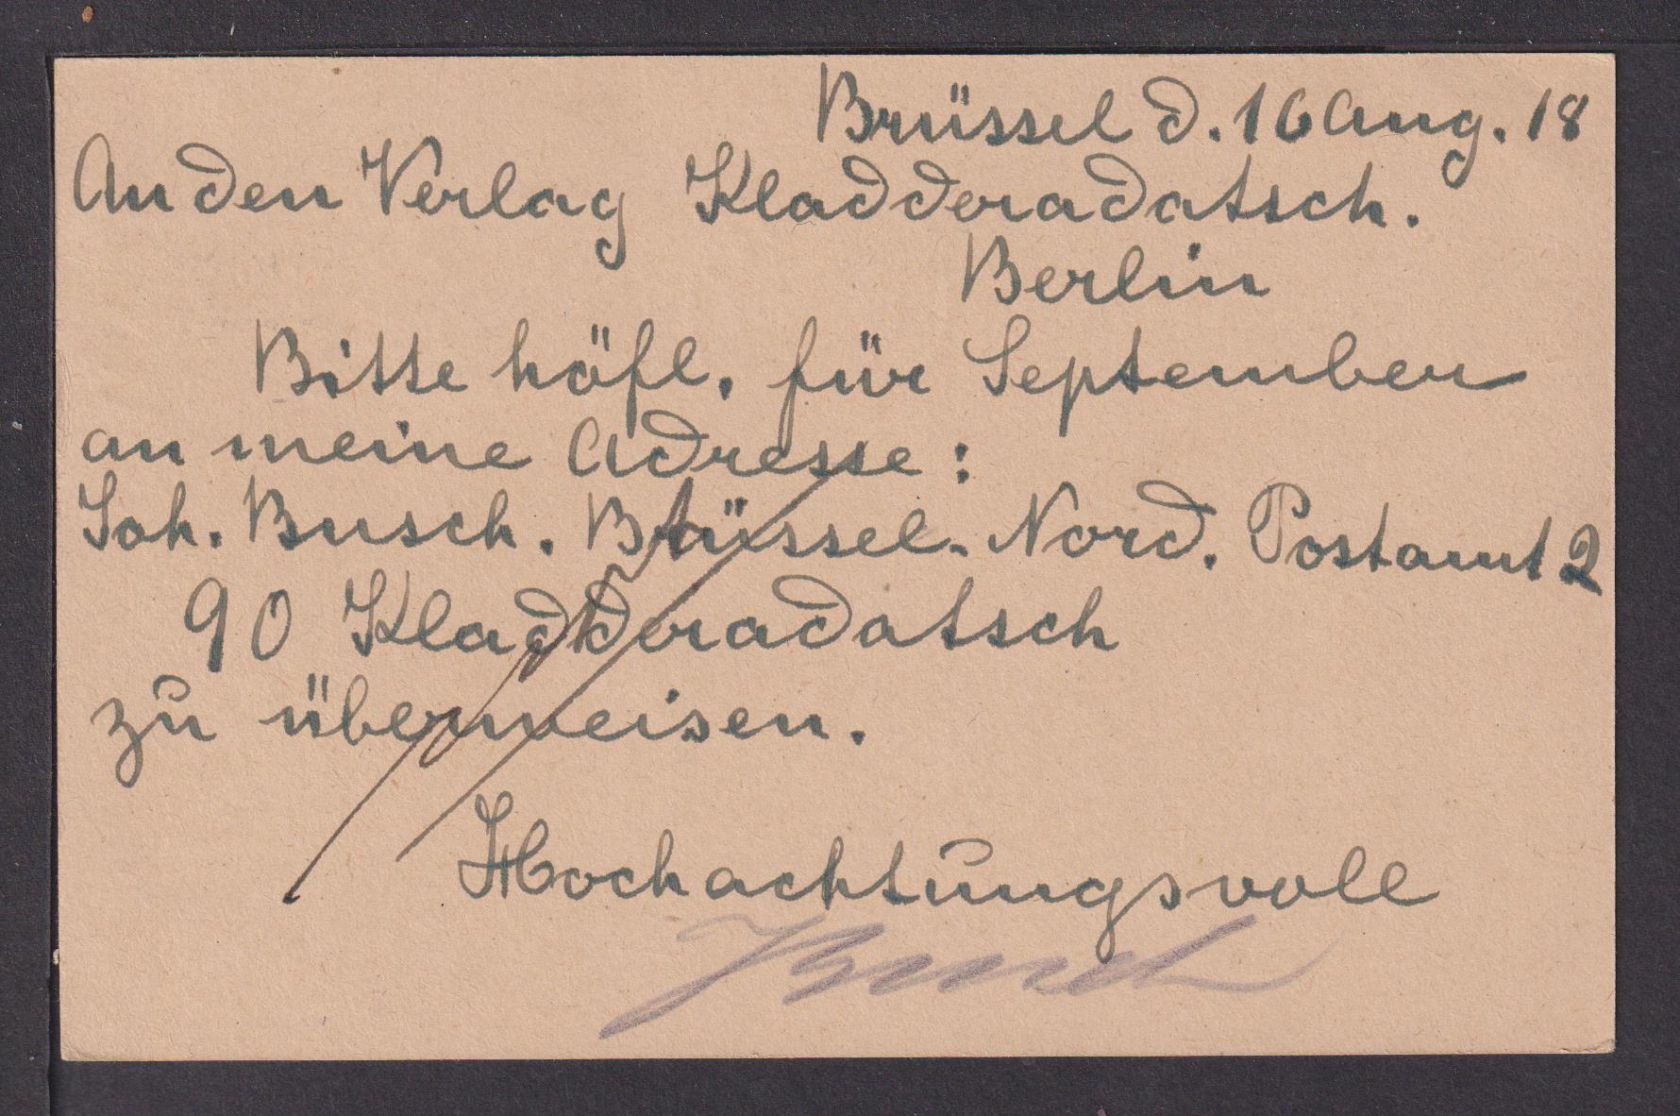 Brüssel d. 16 Aug. 18
An den Verlag Kladderadatsch.
Berlin
Bitte höfl. für September
an meine Adresse:
Joh. Busch. Brüssel-Nord. Postamt 2
90 Kladderadatsch
zu überweisen.
Hochachtungsvoll
JBusch